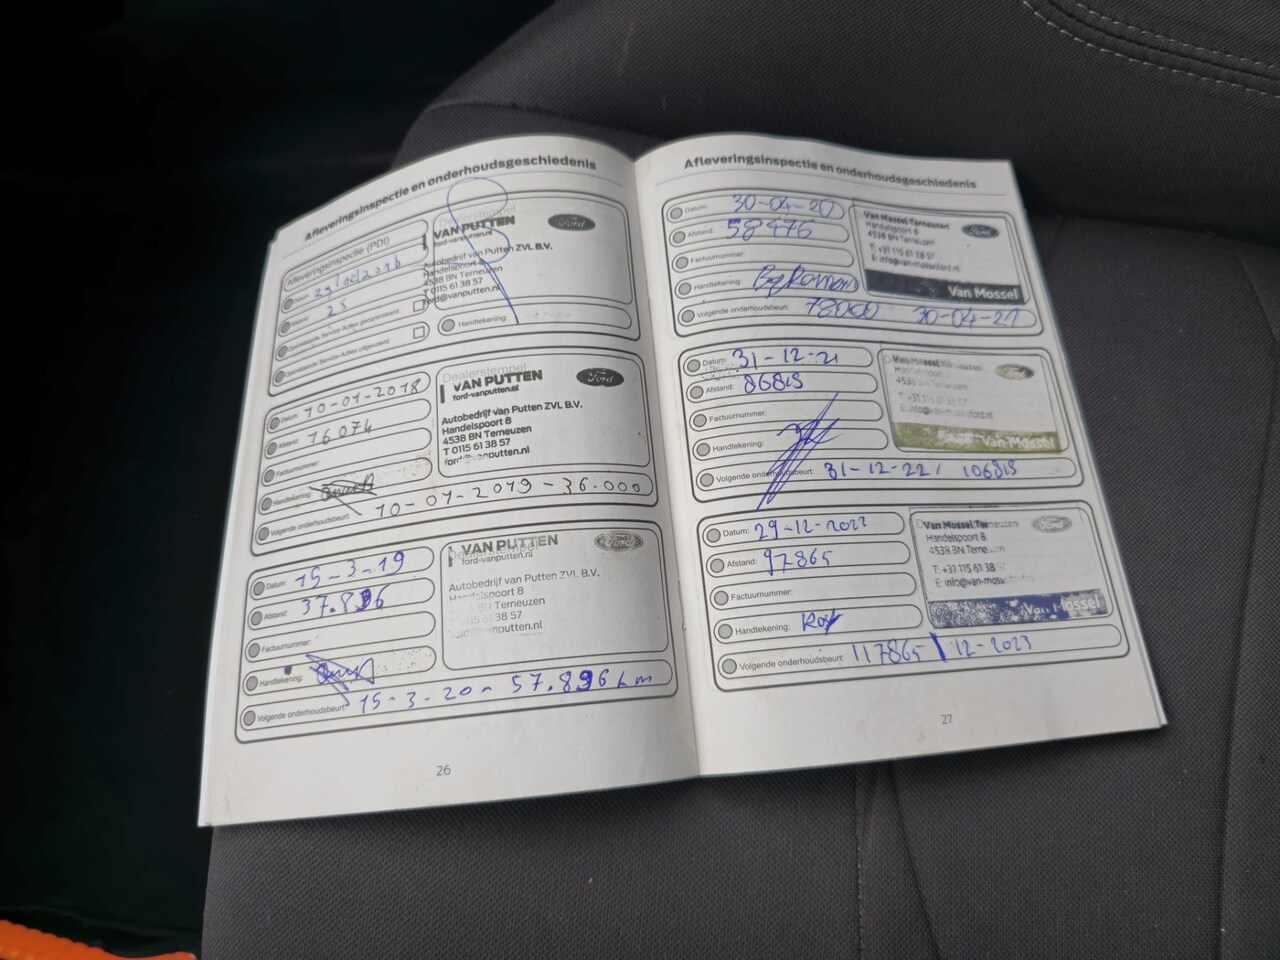 Afleveringsinspectie en onderhoudsgeschiedenis
Afleveringsinspectie (PDI)
Datum: 29/12/2016
25
Openstaande Service-Acties gecontroleerd:
Openstaande Service-Acties uitgevoerd:
Dealerstempel
VAN PUTTEN
ford-vanputten.nl
Autobedrijf van Putten ZVL B.V.
Handelspoort 8
4538 BN Terneuzen
T 0115 61 38 57
ford@vanputten.nl
Ford
Handtekening:
Datum: 10-01-2018
Afstand: 16074
Factuurnummer:
Handtekening:
Volgende onderhoudsbeurt: 10-01-2019-36.000
Dealerstempel
VAN PUTTEN
ford-vanputten.nl
Autobedrijf van Putten ZVL B.V.
Handelspoort 8
4538 BN Terneuzen
T 0115 61 38 57
Ford
Datum: 15-3-19
Afstand: 37.896
Factuurnummer:
Handtekening:
Volgende onderhoudsbeurt: 15-3-20- 57.896 km
Dealerstempel
VAN PUTTEN
ford-vanputten.nl
Autobedrijf van Putten ZVL B.V.
Terneuzen
Ford
26
Afleveringsinspectie en onderhoudsgeschiedenis
Datum: 30-04-20
Afstand: 58476
Factuurnummer:
Handtekening:
Volgende onderhoudsbeurt: 78000 30-04-21
Van Mossel Terneuzen
Handelspoort 8
4538 BN Terneuzen
T: +31 115 61 38 57
Ford
Van Mossel
Datum: 31-12-21
Afstand: 86819
Factuurnummer:
Handtekening:
Volgende onderhoudsbeurt: 31-12-22/ 106819
T: +31 115 61 38 57
Ford
Van Mossel
Datum: 29-12-2022
Afstand: 97865
Factuurnummer:
Handtekening:
Volgende onderhoudsbeurt: 117865 | 12-2023
Van Mossel Terneuzen
Handelspoort 8
4538 BN Terneuzen
T: +31 115 61 38
Ford
Van Mossel
27